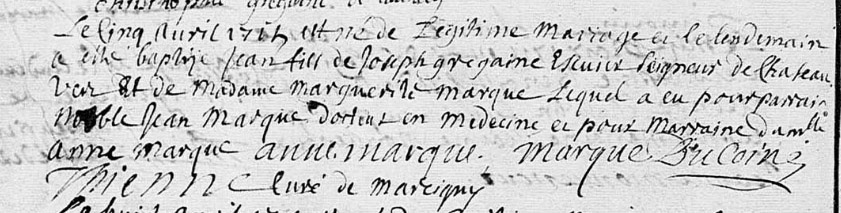 Le cinq avril 1715 est né de Legitime Mariage et le lendemain
a este baptisé Jean fils de Joseph gregaine Escuier Seigneur de Chateau
vert Et de Madame Marguerite Marque Lequel a eu pour parrain
Noble Jean Marque docteur en Medecine et pour Marraine damlle
anne Marque anne. marque. Marque DuCoin
Thienne Curé de Marcigny